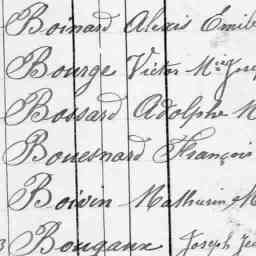 Boinard Alexis Emil
Bourge Victor Mie Jose
Bossard Adolphe M
Bouesnard François
Boivin Mathurin M
3 Bougaux Joseph Je